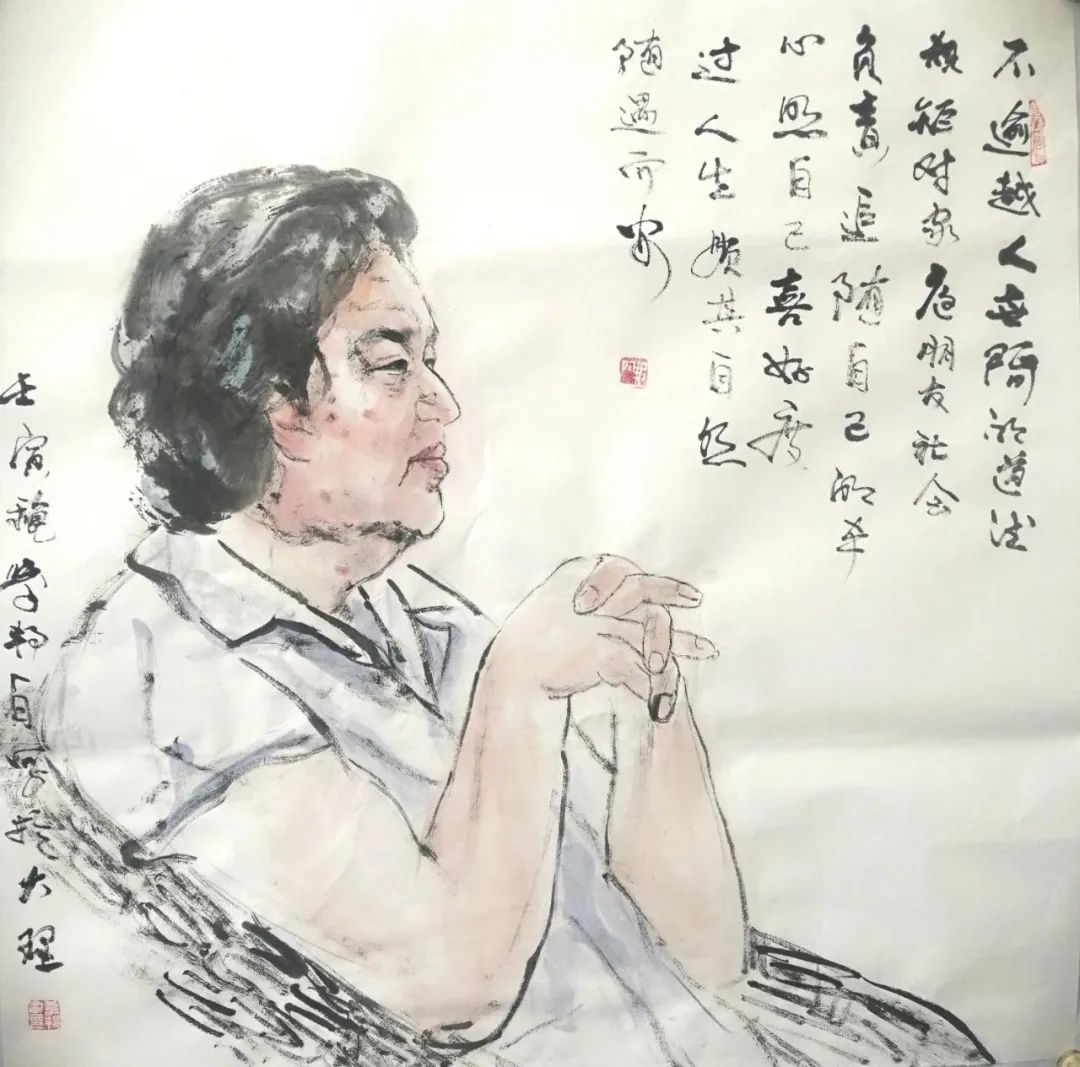 不逾越人世间的道德
规矩对家庭朋友社会
负责追随自己的本
心照自己喜好度
过人生顺其自然
随遇而安
壬寅穐学自写于大理